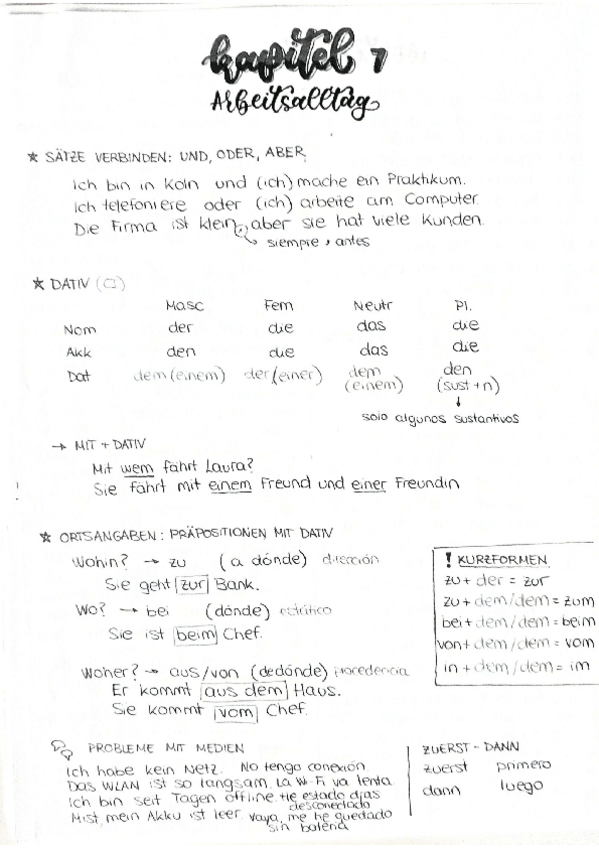 Kapitel 7
Arbeitsalltag
★ SÄTZE VERBINDEN: UND, ODER, ABER
Ich bin in Köln und (ich) mache ein Praktikum.
Ich telefoniere oder (ich) arbeite am Computer.
Die Firma ist klein, aber sie hat viele Kunden.
siempre , antes
★ DATIV
Masc Fem Neutr Pl.
Nom der die das die
Akk den die das die
Dat dem (einem) der (einer) dem (einem) den (sust+n)
↓
solo algunos sustantivos
→ MIT + DATIV
Mit wem fährt Laura?
Sie fährt mit einem Freund und einer Freundin
★ ORTSANGABEN: PRÄPOSITIONEN MIT DATIV
Wohin? → zu (a dónde) dirección
Sie geht zur Bank.
Wo? → bei (dónde) estático
Sie ist beim Chef.
Woher? → aus/von (de dónde) procedencia
Er kommt aus dem Haus.
Sie kommt vom Chef.
! KURZFORMEN
zu + der = zur
zu + dem/dem = zum
bei + dem/dem = beim
von + dem/dem = vom
in + dem/dem = im
PROBLEME MIT MEDIEN
Ich habe kein Netz. No tengo conexión
Das WLAN ist so langsam. La Wi-Fi va lenta
Ich bin seit Tagen offline. He estado días desconectado
Mist, mein Akku ist leer. Vaya, me he quedado sin batería
ZUERST - DANN
zuerst primero
dann luego